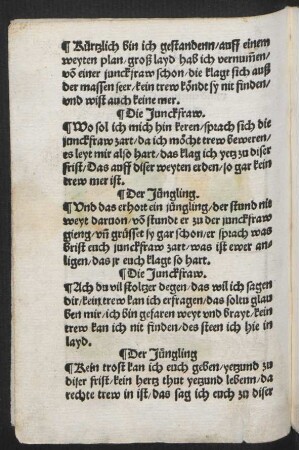 ¶ Kürtzlich bin ich gestandenn/auff einem
weyten plan/groß layd hab ich vernum̃en/
võ einer junckfraw schon/die klagt sich auß
der massen seer/kein trew köndt sy nit finden/
und wist auch keine mer.
¶ Die Junckfraw.
¶ Wo sol ich mich hin keren/sprach sich die
junckfraw zart/da ich möcht trew beweren/
es leyt mir also hart/das klag ich yetz zu diser
frist/Das auff diser weyten erden/so gar kein
trew mer ist.
¶ Der Jüngling.
¶ Und das erhort ein jüngling/der stund nit
weyt daruon/võ stund er zu der junckfraw
gieng/vñ grüsset sy gar schon/er sprach was
brist euch junckfraw zart/was ist ewer an-
ligen/das jr euch klagt so hart.
¶ Die Junckfraw.
¶ Ach du vil stoltzer degen/das wil ich sagen
dir/kein trew kan ich erfragen/das soltu glau
ben mir/ich bin gefaren weyt vnd brayt/kein
trew kan ich nit finden/des steen ich hie in
layd.
¶ Der Jüngling
¶ Kein trost kan ich euch geben/yetzund zu
diser frist/kein hertz thut yetzund lebenn/da
rechte trew in ist/das sag ich euch zu diser